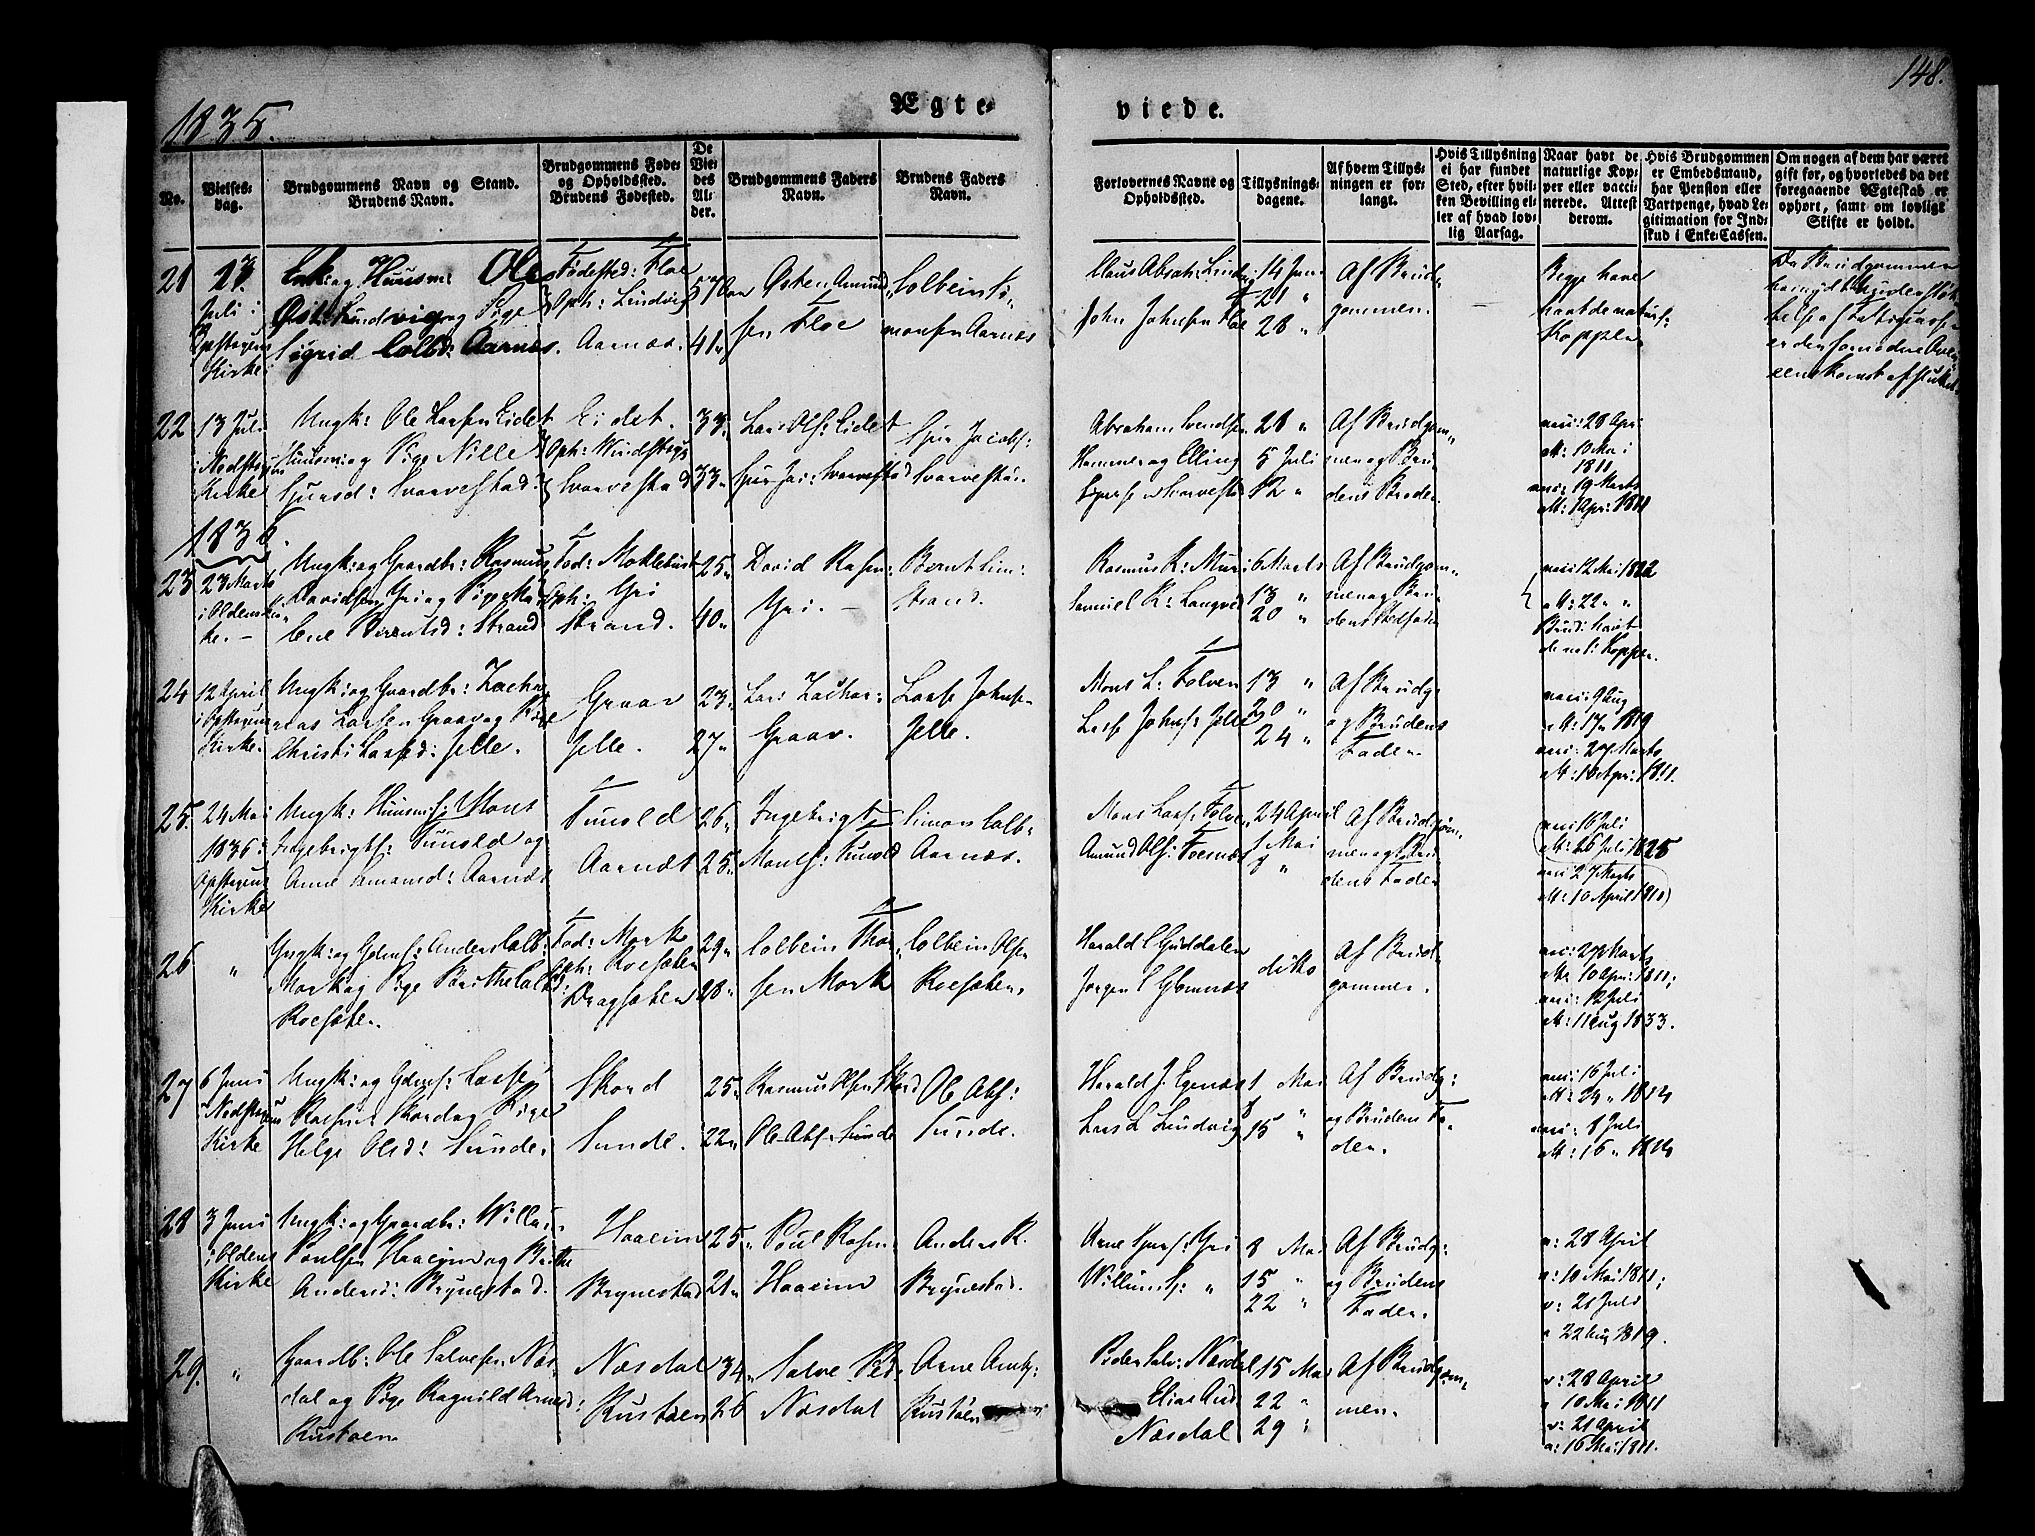 148.
1835.
Ægte-
viede.
No.
Vielses-
dag.
Brudgommens Navn og Stand.
Brudens Navn.
Brudgommens Føde-
og Opholdssted.
Brudens Fødested.
De
Vie-
des
Al-
der.
Brudgommens Faders
Navn.
Brudens Faders
Navn.
Forlovernes Navne og
Opholdssted.
Tillysnings-
dagene.
Af hvem Tillys-
ningen er for-
langt.
Hvis Tillysning
ei har fundet
Sted, efter hvil-
ken Bevilling el-
ler af hvad lov-
lig Aarsag.
Naar havt de
naturlige Kop-
per eller vacci-
nerede. Attest
derom.
Hvis Brudgommen
er Embedsmand,
har Pension eller
Vartpenge, hvad Le-
gitimation for Ind-
skud i Enke-Cassen.
Om nogen af dem har været
gift før, og hvorledes da det
foregaaende Ægteskab er
ophørt, samt om lovligt
Skifte er holdt.
21
Juli i
Opstryns
Kirke
Huusm: Ole
Lindvig og Pige
Sigrid Colbs: Aarnæs.
Fødested: Floe
Oph: Lindvig
Aarnæs.
57
41
Osten Amund
sen Floe
Colbein Si-
monsen Aarnæs
Claus Absal: Lindv:
John Johnsen Floe
14 Juni
21 "
28 "
Af Brud-
gommen.
Begge have
havt de naturl:
Kopper
22
13 Juli
i Nedstryns
Kirke
Ungk: Ole Larsen Eidet
Huusm: og Pige Nille
Sjursd: Svarvestad.
Eidet.
Oph: Vindstryn
Svarvestad
33
33
Lars Ols: Eidet
Sjur Jac: Svarvestad
Sjur Jacobs:
Svarvestad.
Abraham Svendsen
Hammer og Elling
Sjursen Svarvestd
28 "
5 Juli
12 "
Af Brudgom-
men og Bru-
dens Broder.
vaci: 28 Apr:
Att: 10 Mai
1811
vaci: 19 Marts
Att: 1 Apr: 1811
1836.
23
23 Marts
i Olden Kir-
ke. -
Ungk: og Gaardbr: Rasmus
Davidsen Yri og Pige Ma-
lene Berentsd: Strand
Fød: Moklebust
Oph: Yri
Strand.
25
40
David Rasm:
Yri. -
Bernt Sim:
Strand.
Rasmus R: Muri
Samuel R: Langved
6 Marts
13 "
20 "
Af Brudgom-
men og Bru-
dens Stedfader
vaci 12 Mai 1822
Att: 22 " "
Brud: havt
de nat: Kopper.
24
12 April
i Opstryns
Kirke.
Ungk: og Gaardbr: Zacha-
rias Larsen Graav og Pige
Christi Larsd: Jelle.
Graav
Jelle.
23
27
Lars Zachar:
Graav.
Lasse Johnsen
Jelle.
Mons L: Folven
Lasse Johns: Jelle
13 "
20 "
24 "
Af Brudg:
og Brudens
Fader.
vaci: 9 Aug
Att: 17 " 1819
vaci: 27 Marts
Att: 10 Apr: 1811.
25.
24 Mai
1836 i
Opstryns
Kirke
Ungk: Huusm: Mons
Ingebrigts: Tunold og
Anne Simonsd: Aarnæs
Tunold
Aarnæs
26
25
Ingebrigt
Mons: Tunold
Simon Colb:
Aarnæs.
Mons Lars: Folven
Amund Ols: Fosnæs
24 April
1 Mai
8 "
Af Brudgom-
men og Bru-
dens Fader
vaci 16 Juli
Att: 26 Juli 1825
vaci 27 Marts
Att: 10 April 1810
26
"
Ungk: og Gdms: Anders Colb:
Mork og Pige Barthe Colbs:
Roesæter.
Fød: Mork
Oph: Roesæter
Dragsæter
29
28
Colbein Tho-
sen Mork
Colbein Olsen
Roesæter.
Harald C Guddalen
Jørgen C Glomnæs
ditto
Af Brud-
gommen.
vaci: 27 Marts
Att: 10 Apr: 1811;
vaci: 12 Juli
Att: 1 Aug 1833.
27
6 Juni
i Nedstryns
Kirke
Ungk: og Gdms: Lasse
Rasmus: Skord og Pige
Helge Olsd: Sunde.
Skord
Sunde.
25
22
Rasmus Olsen Skord
Ole Abs: Sunde
Ole Abs:
Sunde.
Harald J. Egenæs
Lars L Lindvig
1 Mai
8 "
15 "
Af Brudg:
og Brudens Fa-
der.
vaci: 16 Juli
Att: 24 " 1814
vaci: 8 Juli
Att: 16 " 1814
28
3 Juni
i Oldens
Kirke
Ungk: og Gaardbr: Willum
Poulsen Haaeim og Birthe
Andersd: Brynestad.
Haaeim
Brynestad
25
21
Poul Rasm:
Haaeim
Anders R.
Brynestad.
Arne Sjurs: Yri
Willum S: "
8 Mai
15 "
22 "
Af Brudg:
og Brudens
Fader.
v: 28 April
a: 10 Mai 1811;
v: 21 Juli
a 22 Aug 1819.
29.
"
Gaardb: Ole Salvesen Næs-
dal og Pige Ragnild Arnesd:
Rustøen
Næsdal
Rustøen
34
26
Salve Ped:
Næsdal
Arne Ants:
Rustøen
Peder Salv: Næsdal
Elias And
Næsdal
15 Mai
22 "
29 "
Af Brudgom-
men.
v: 28 April
a 10 Mai 1811
v: 21 April
a: 16 Mai 1811.